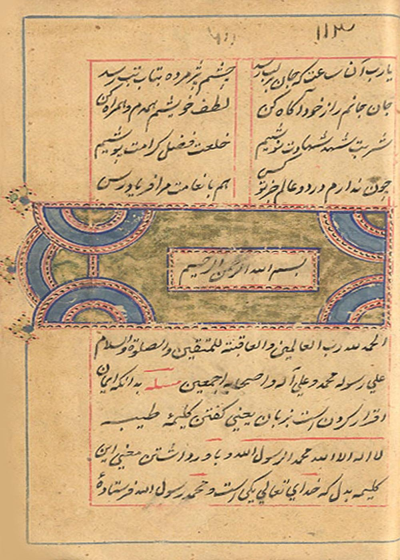 ۱۱۳
یا رب آن ساعت که جان بر لب رسد چشم پژمرده بتاب تب رسد
جان جانم را ز خود آگاه کن لطف خویشم همدم و همراه کن
شربت شهد شهادت نوشیم خلعت فضل کرامت پوشیم
چون ندارم در دو عالم جز تو کس هم بانعامت مرا فریاد رس
بسم الله الرحمن الرحیم
الحمد لله رب العالمین والعاقبته للمتقین والصلوة والسلام
علی رسوله محمد وعلی آله واصحابه اجمعین مسله بدانکه ایمان
اقرار کردن است بزبان یعنی گفتن کلیمهٔ طیبه
لا اله الا الله محمد الرسول الله و باور داشتن معنی این
کلیمه بدل که خدای تعالی یکی است و محمد رسول الله فرستادهٔ